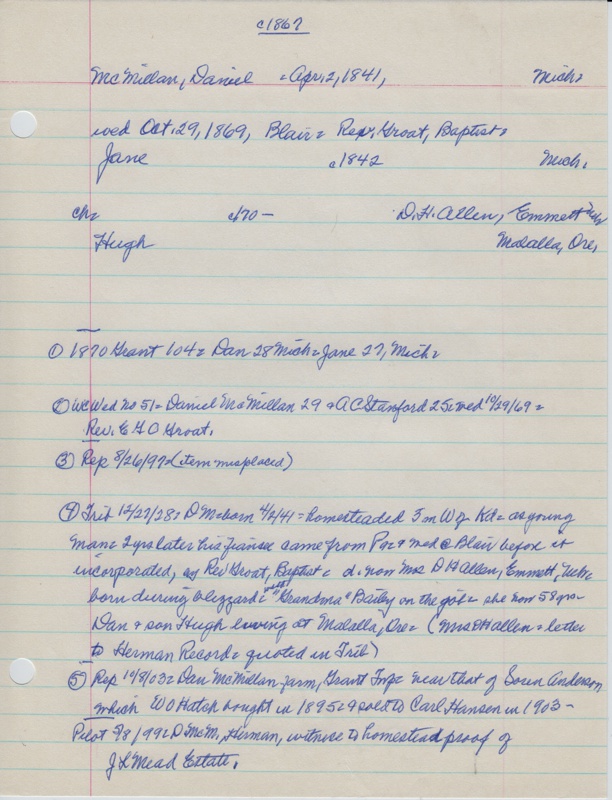 c1867
McMillan, Daniel = Apr. 2, 1841, Mich.
wed Oct. 29, 1869, Blair = Rev. Groat, Baptist.
Jane c1842 Mich.
ch= c/70 — D.H. Allen, Emmett Neb
Hugh Molalla, Ore,
① 1870 Grant 104 = Dan 28 Mich = Jane 27, Mich =
② WC Wed no 51 = Daniel McMillan 29 & A C Stanford 25 = wed 10/29/69 =
Rev. E G O Groat.
③ Rep 8/26/97 = (item misplaced)
④ Trib 12/27/28 = D M = born 4/2/41 = homesteaded 5 m W of Kd = as young
man = 2 yrs later his fiancee came from Pa = & wed @ Blair before it
incorporated, by Rev Groat, Baptist = d. now Mrs D H Allen, Emmett, Neb =
born during blizzard = with "Grandma" Bailey on the job = she now 58 yrs =
Dan & son Hugh living at Molalla, Ore = (Mrs D H Allen = letter
to Herman Record = quoted in Trib)
⑤ Rep 10/8/03 = Dan McMillan farm, Grant Twp = near that of Soren Anderson
which W O Hatch bought in 1895 = & sold to Carl Hansen in 1903 —
Pilot 3/8/99 = D McM, Herman, witness to homestead proof of
J L Mead Estate.